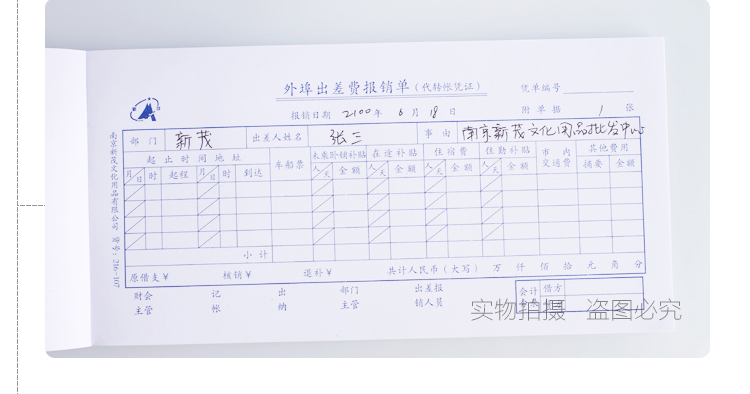 外埠出差费报销单(代转帐凭证)
凭单编号
报销日期 2100年 6月 18日
附单据 1 张
部门 新茂 出差人姓名 张三 事由 南京新茂文化用品批发中心
起止时间地址 车船票 未乘卧铺补贴 在途补贴 住宿费 住勤补贴 市内交通费 其他费用
月 日 时 起程 月 日 时 到达 人 天 金额 人 天 金额 人 天 金额 人 天 金额 摘要 金额
小计
原借支¥ 核销¥ 退补¥ 共计人民币(大写) 万 仟 佰 拾 元 角 分
财会主管 记帐 出纳 部门主管 出差报销人员 会计 借方
南京新茂文化用品有限公司 编号:216-107
实物拍摄 盗图必究